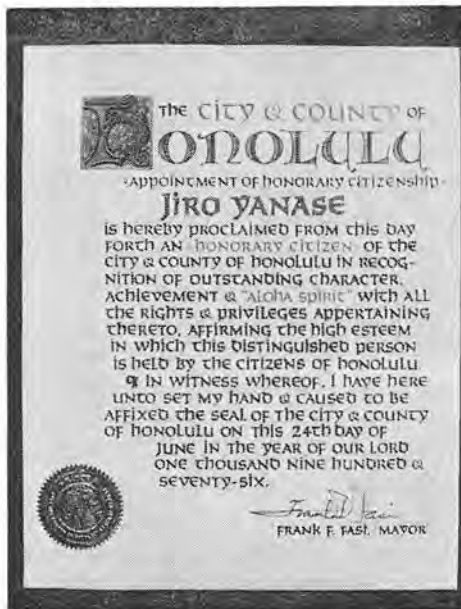 THE CITY & COUNTY OF
HONOLULU
·APPOINTMENT OF HONORARY CITIZENSHIP·
JIRO YANASE
IS HEREBY PROCLAIMED FROM THIS DAY
FORTH AN HONORARY CITIZEN OF THE
CITY & COUNTY OF HONOLULU IN RECOG-
NITION OF OUTSTANDING CHARACTER,
ACHIEVEMENT & "ALOHA SPIRIT" WITH ALL
THE RIGHTS & PRIVILEGES APPERTAINING
THERETO, AFFIRMING THE HIGH ESTEEM
IN WHICH THIS DISTINGUISHED PERSON
IS HELD BY THE CITIZENS OF HONOLULU
¶ IN WITNESS WHEREOF, I HAVE HERE
UNTO SET MY HAND & CAUSED TO BE
AFFIXED THE SEAL OF THE CITY & COUNTY
OF HONOLULU ON THIS 24TH DAY OF
JUNE IN THE YEAR OF OUR LORD
ONE THOUSAND NINE HUNDRED &
SEVENTY-SIX.
Frank F. Fasi
FRANK F. FASI, MAYOR